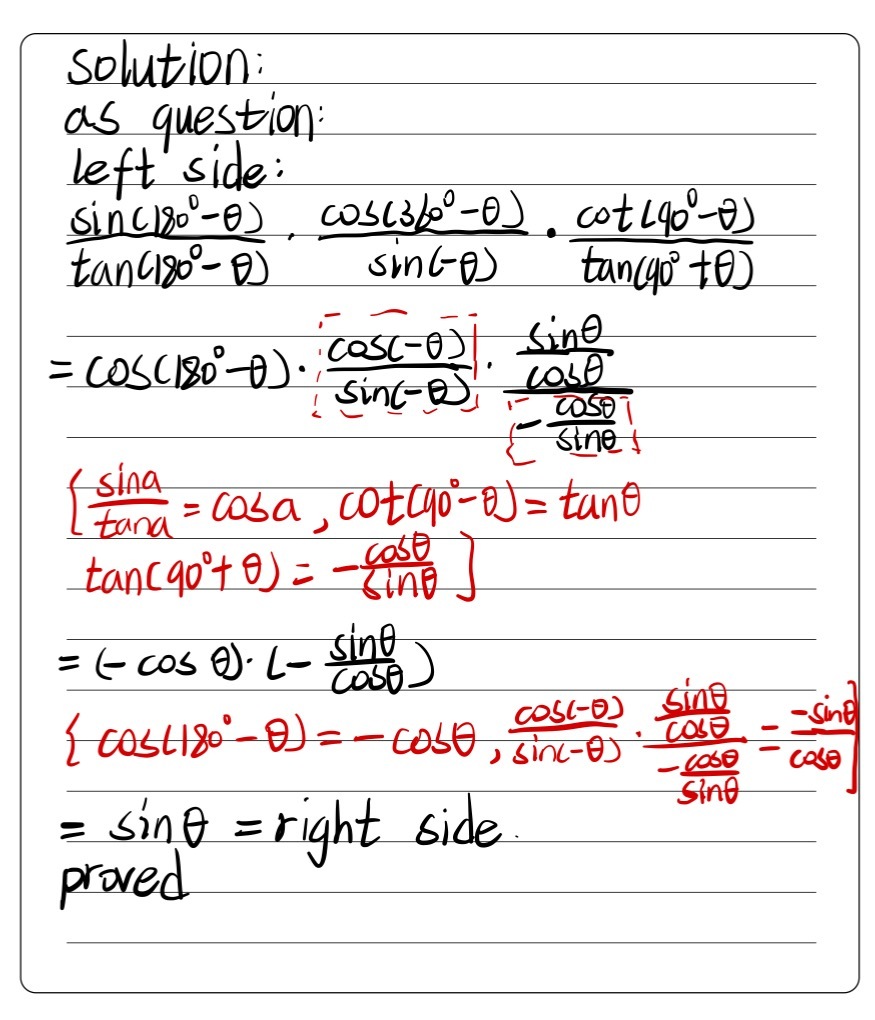 solution:
as question:
left side:
sin(180°-θ)/tan(180°-θ) · cos(360°-θ)/sin(-θ) · cot(90°-θ)/tan(90°+θ)
= cos(180°-θ) · cos(-θ)/sin(-θ) · (sinθ/cosθ)/(-cosθ/sinθ)
[sina/tana = cosa, cot(90°-θ) = tanθ
tan(90°+θ) = -cosθ/sinθ]
= (-cos θ)·(-sinθ/cosθ)
{cos(180°-θ) = -cosθ, cos(-θ)/sin(-θ) · (sinθ/cosθ)/(-cosθ/sinθ) = -sinθ/cosθ]
= sinθ = right side.
proved